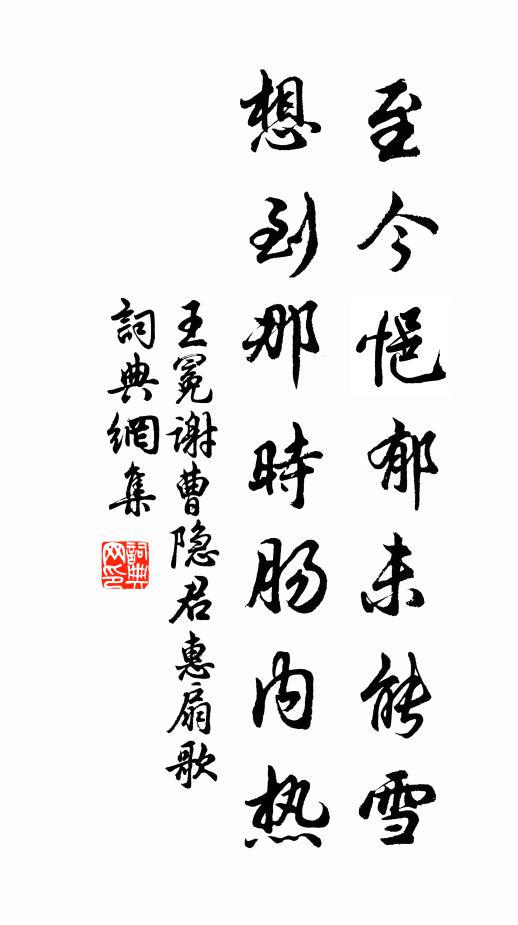 至今悒郁未能雪
想到那時肠内热
王冕谢曹隐君惠扇歌
詞典網集
詞典网印